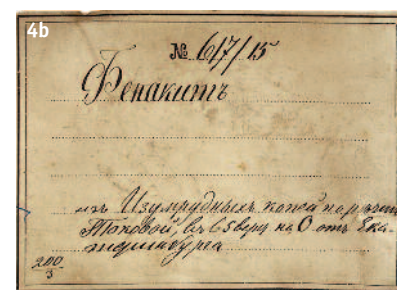 4b
№ 617/15
Фенакитъ
изъ Изумрудныхъ копей по рѣчкѣ
Токовой, въ 65 верш на О отъ Ека-
теринбурга
200
3